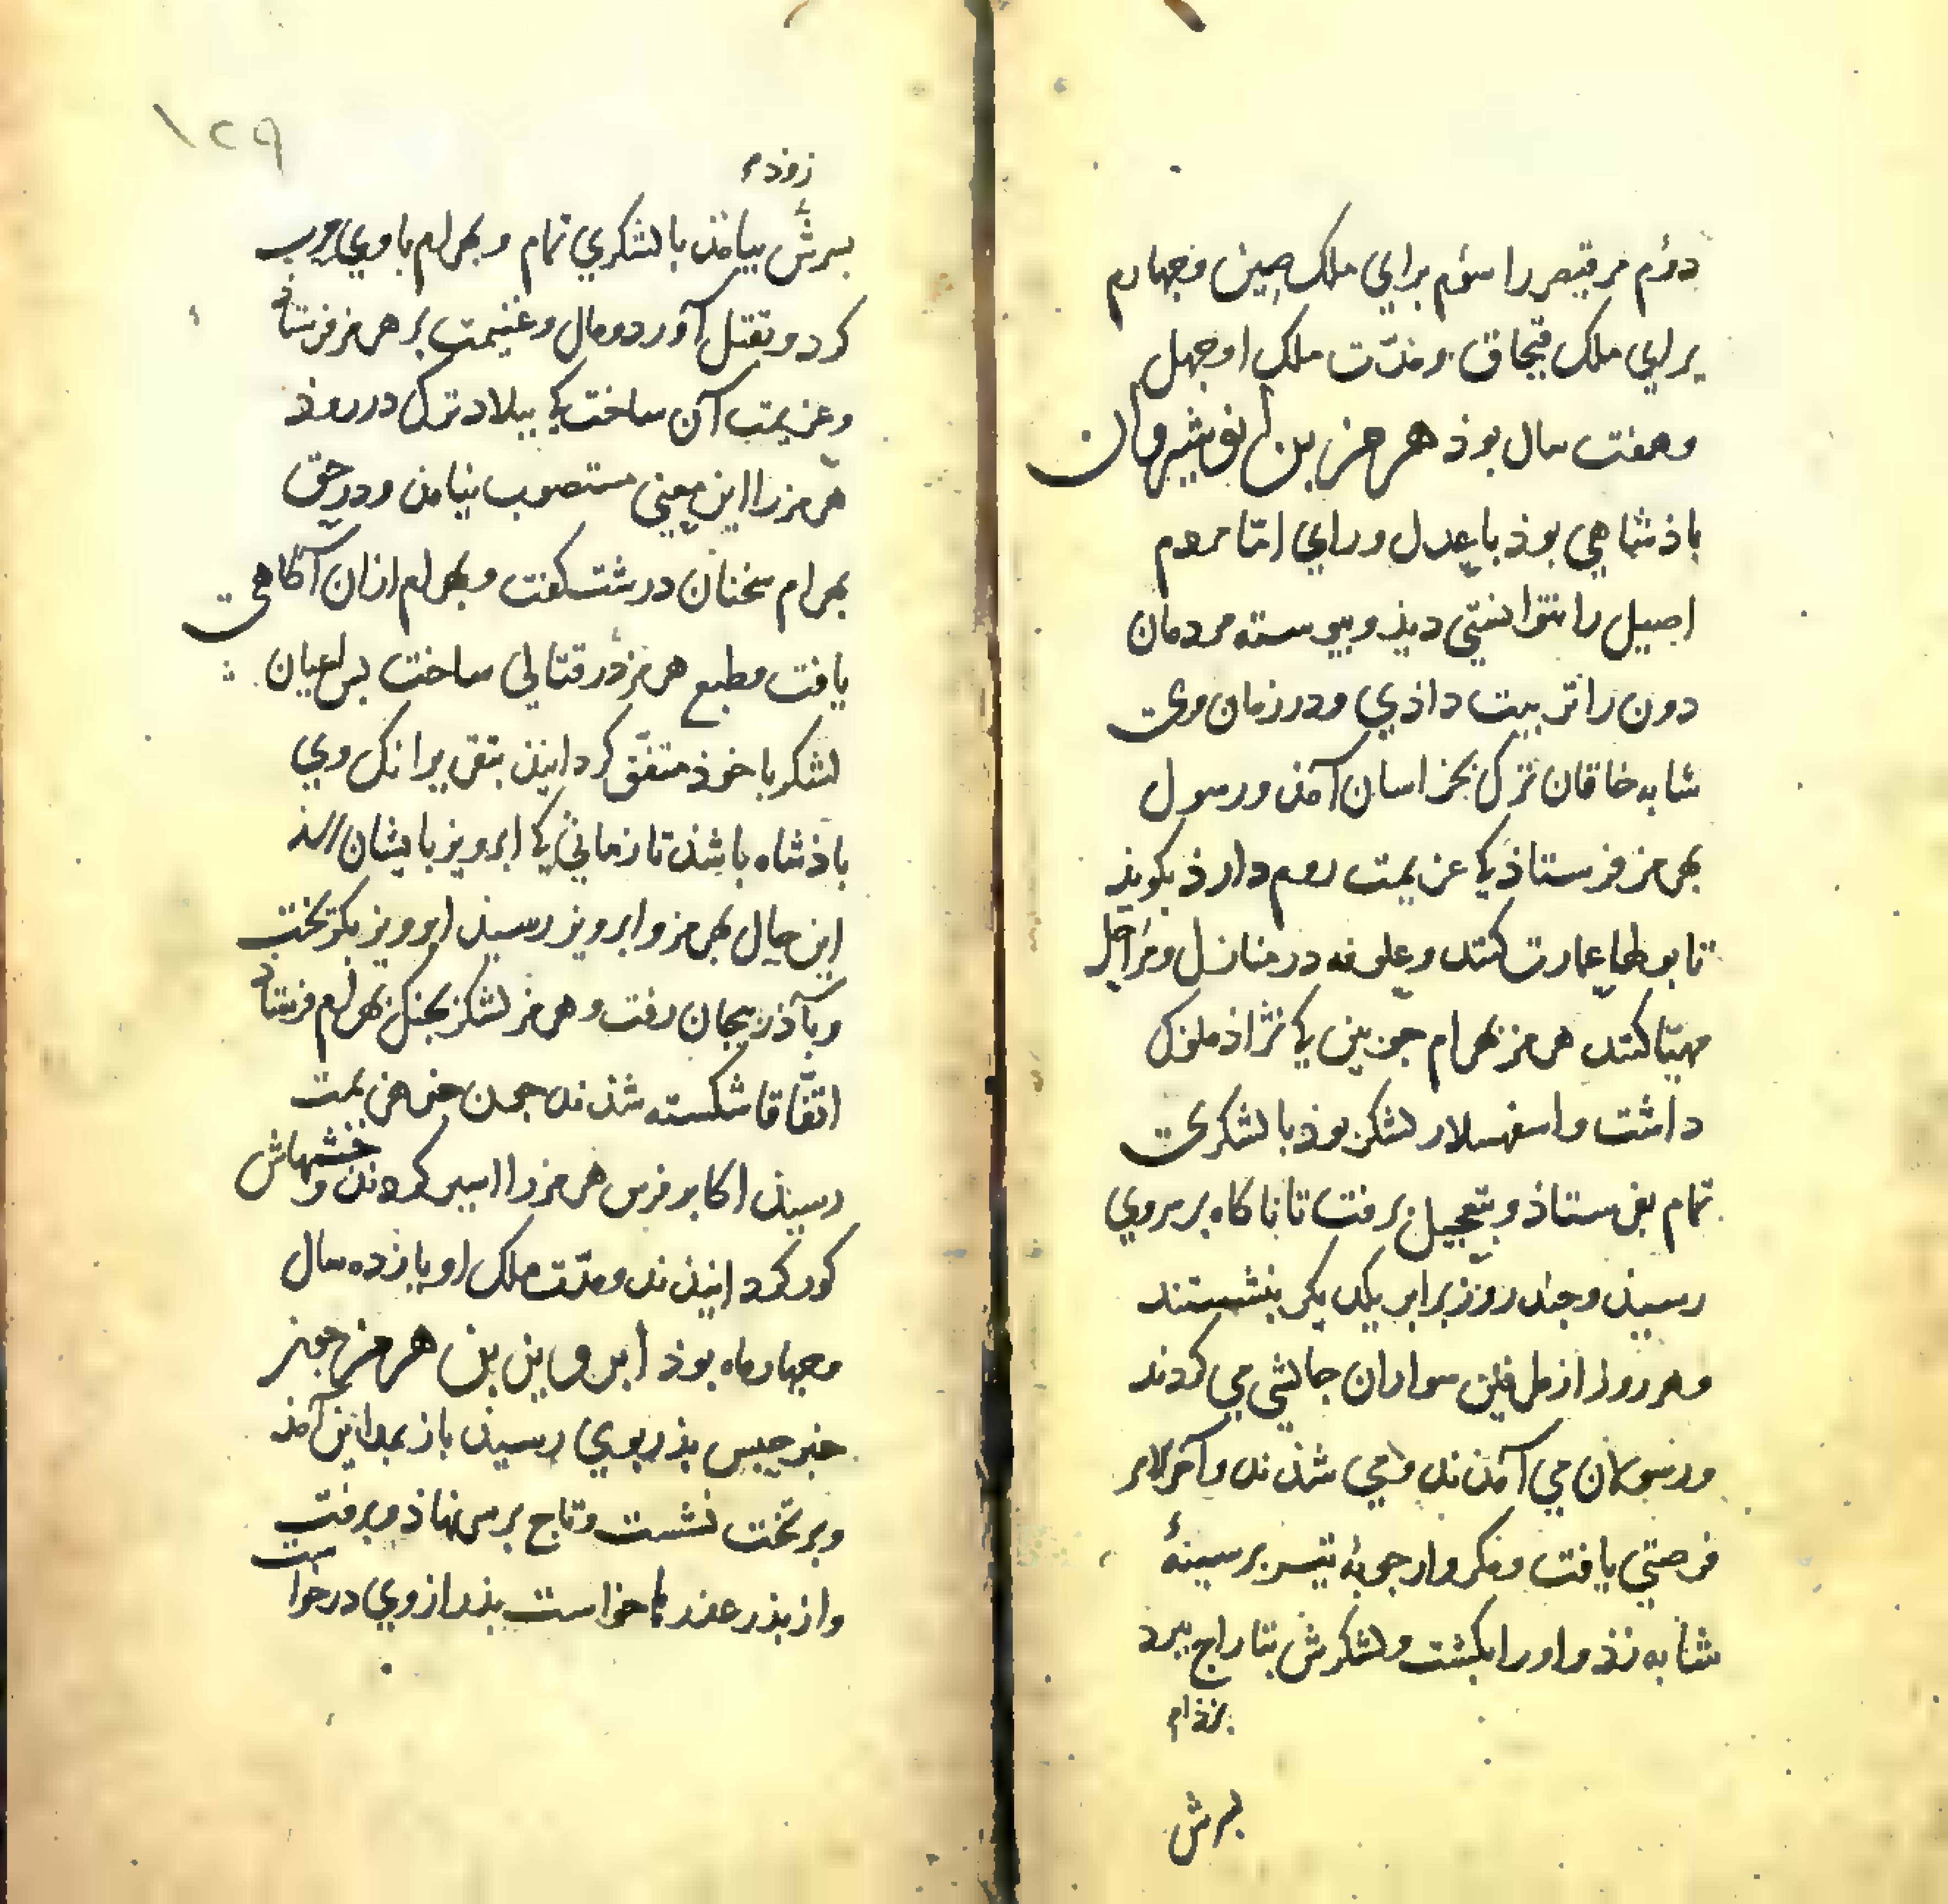 دوم مر قیصر را سوم برای ملک چین و چهارم
برای ملک قبجاق و مدّت ملک او چهل
و هفت سال بوذ هرمز بن انوشیروان
باذشاهی بوذ با عدل و رای امّا مردم
اصیل را نتوانستی دیذ و پیوسته مردمان
دون را تربیت داذی و در زمان وی
شابه خاقان ترک بخراسان آمذ و رسول
بهرمز فرستاذ کی عزیمت روم دارذ بکویذ
تا بولها عمارت کنند و علوفه در منازل و مراحل
مهیّا کنند هرمز بهرام جوبین کی نژاذ ملوک
داشت و اسفهسلار لشکر بوذ با لشکری
تمام بفرستاذ و بتعجیل برفت تا ناکاه بر سر وی
رسیذ و جند روز برابر یکدیکر بنشستند
و هر روز از طرفین سواران جالشی می کردند
و رسولان می آمذند و می شذند و آخرالامر
فرصتی یافت و مکروار جوبهٔ تیر بر سینهٔ
شابه زذ و او را بکشت و لشکرش بتاراج ببرد
بسرش
۱۲۹
بسرش بیامذ با لشکری تمام و بهرام با وی حرب
کرد و بقتل آورد و مال و غنیمت بر هرمز فرستاذ
و عزیمت آن ساخت کی ببلاد ترک در روذ
هرمز را این معنی مستصوب نیامذ و در حق
بهرام سخنان درشت کفت و بهرام ازان آکاهی
یافت و طبع هرمز در قتالی ساخت بس اعیان
لشکر با خوذ متفق کردانیذ بتقریر انک وی
باذشاه باشذ تا زمانی کی ابرویز بایشان
این حال بهرمز و ابرویز رسیذ ابرویز بکریخت
و بآذربیجان رفت و هرمز لشکر بجنک بهرام فرستاذ
اتّفاقا شکسته شذند جون خبر هزیمت
رسیذ اکابر فرس هرمز را اسیر کردند و جشمهاش
کور کردانیذند و مدّت ملک او یازده سال
و چهار ماه بوذ ابرویز بن هرمز چون
خبر حبس بذر بوی رسیذ باز بمداین آمذ
و بر تخت نشست و تاج بر سر نهاذ و برفت
و از بذر عذرها خواست بذر از وی در خواست